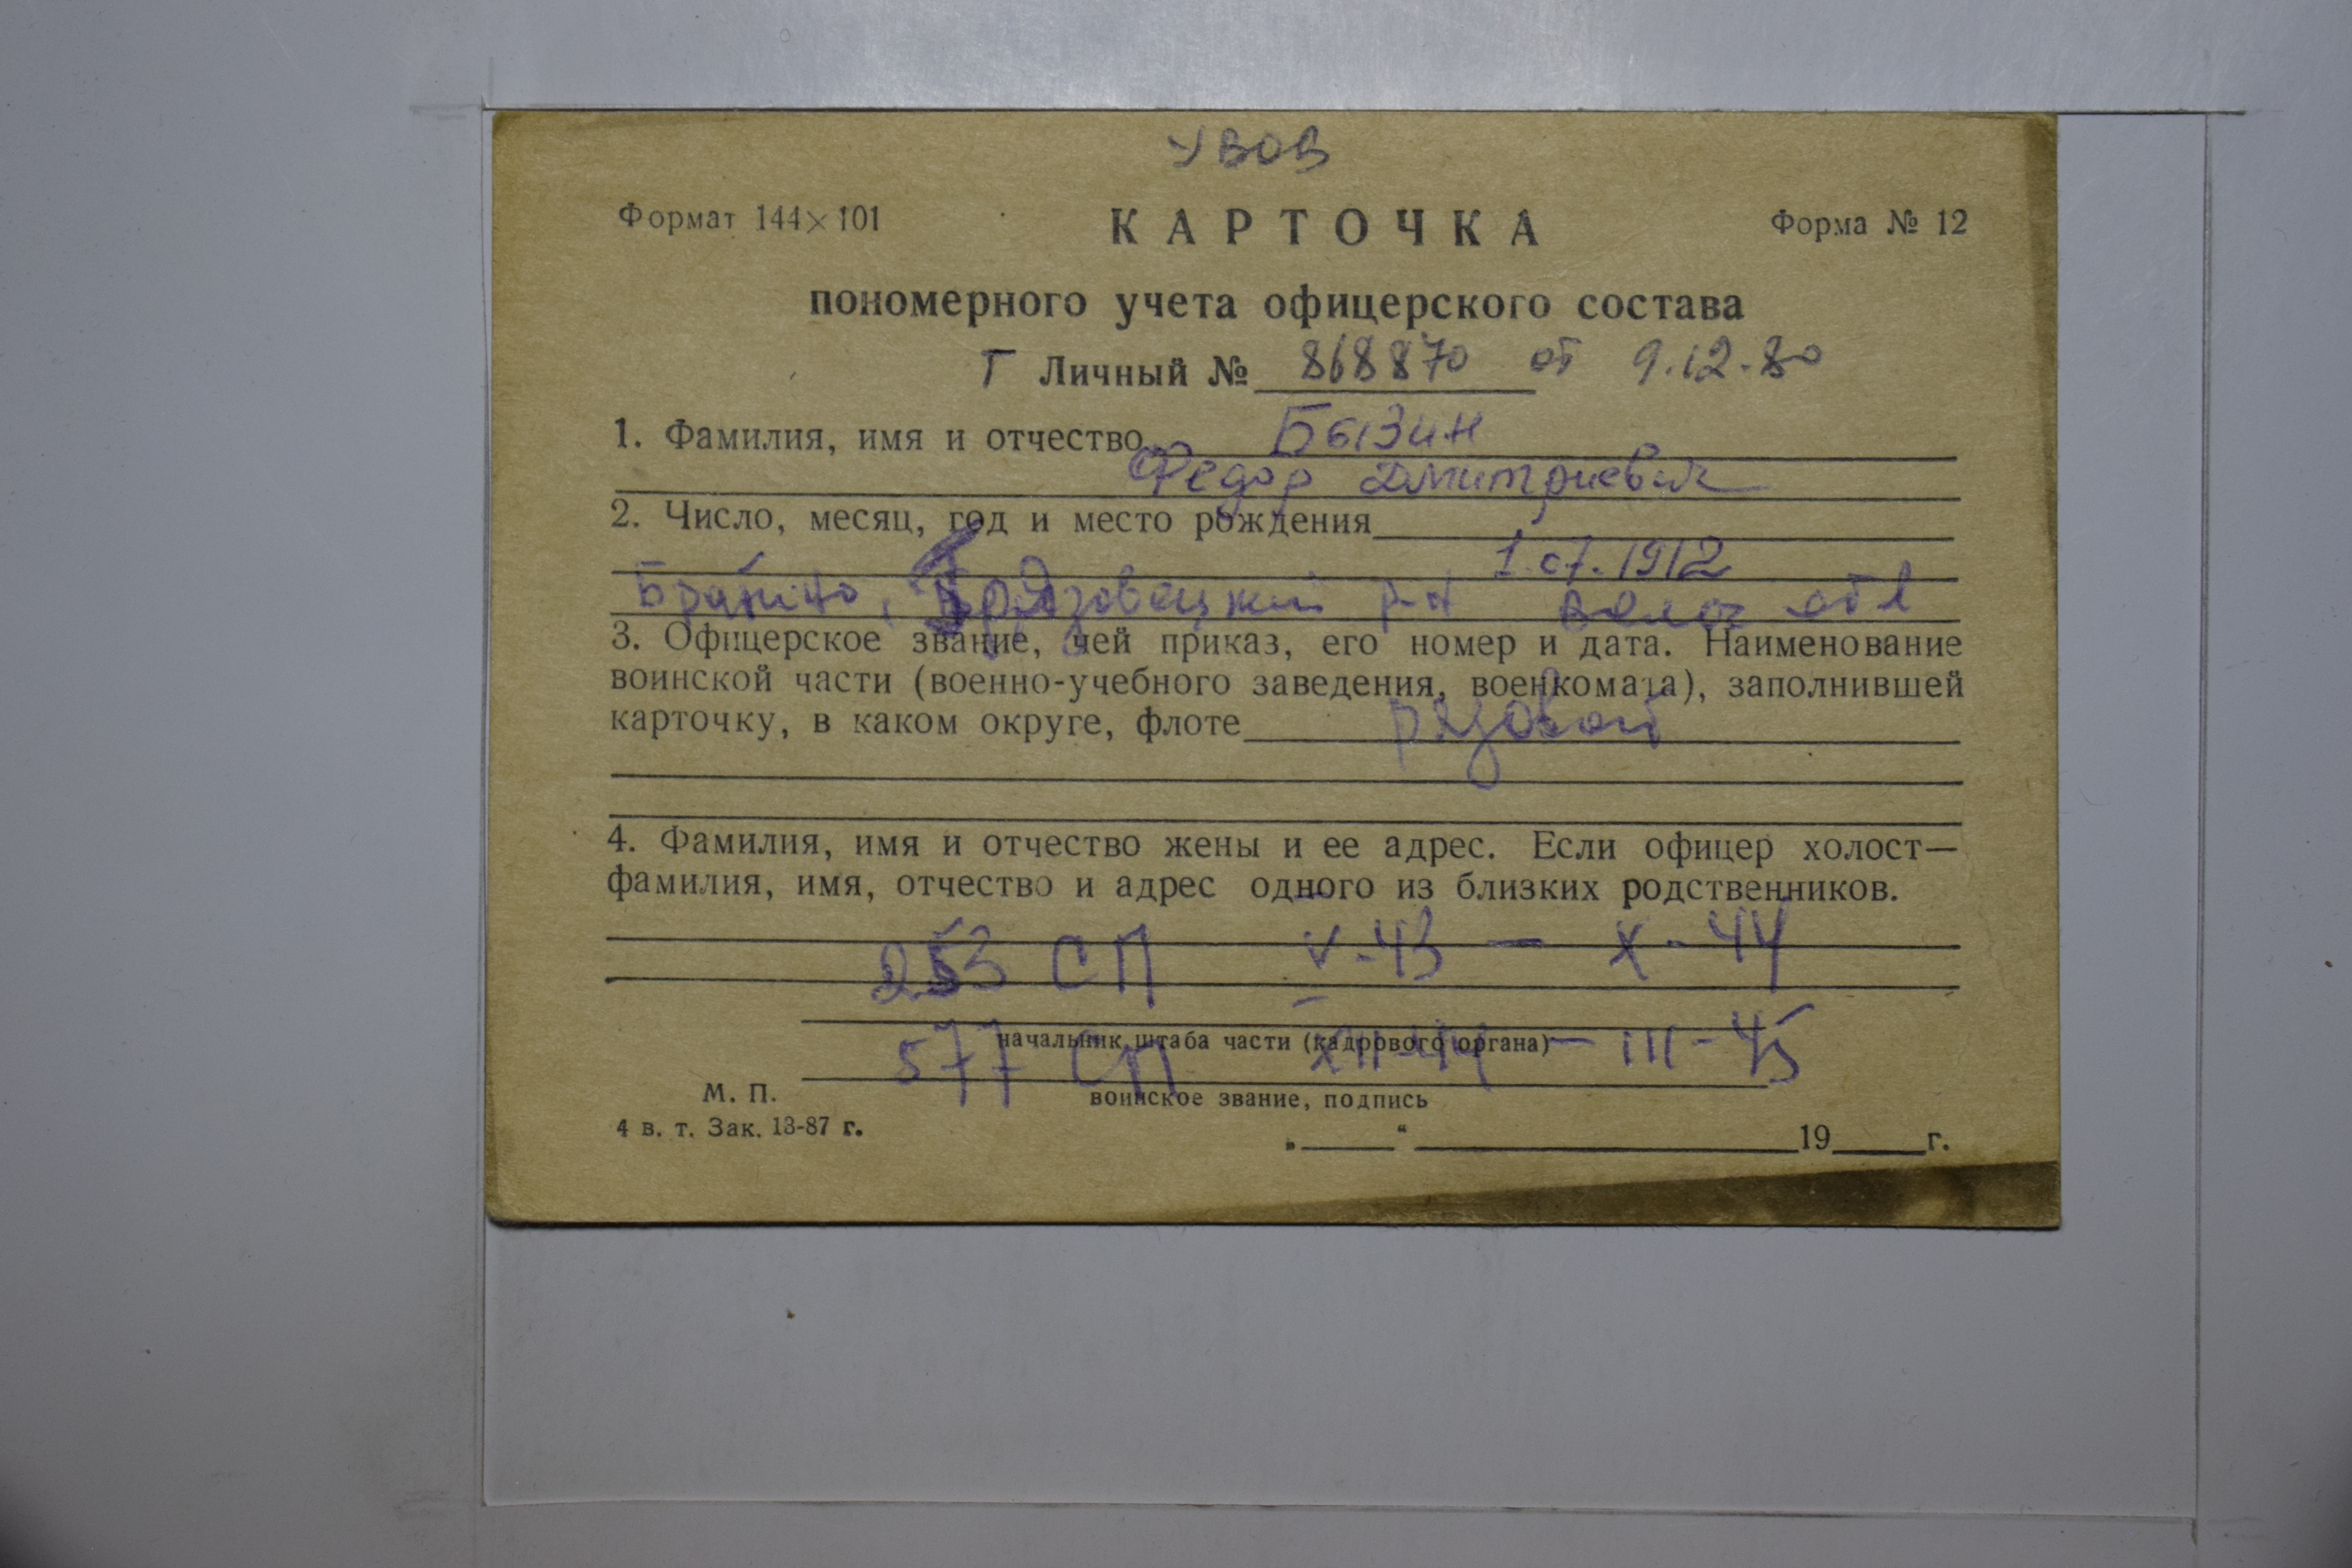 УВОВ
Формат 144×101 КАРТОЧКА Форма № 12
пономерного учета офицерского состава
Г Личный № 868870 от 9.12.80
1. Фамилия, имя и отчество Бызин
Федор Дмитриевич
2. Число, месяц, год и место рождения
1.07.1912
Грязовецкий р-н Волог обл
3. Офицерское звание, чей приказ, его номер и дата. Наименование
воинской части (военно-учебного заведения, военкомата), заполнившей
карточку, в каком округе, флоте рядовой
4. Фамилия, имя и отчество жены и ее адрес. Если офицер холост—
фамилия, имя, отчество и адрес одного из близких родственников.
253 СП V-43 — X-44
начальник штаба части (кадрового органа)
577 СП XII-44 — III-45
М. П. воинское звание, подпись
4 в. т. Зак. 13-87 г.
„ “ 19 г.